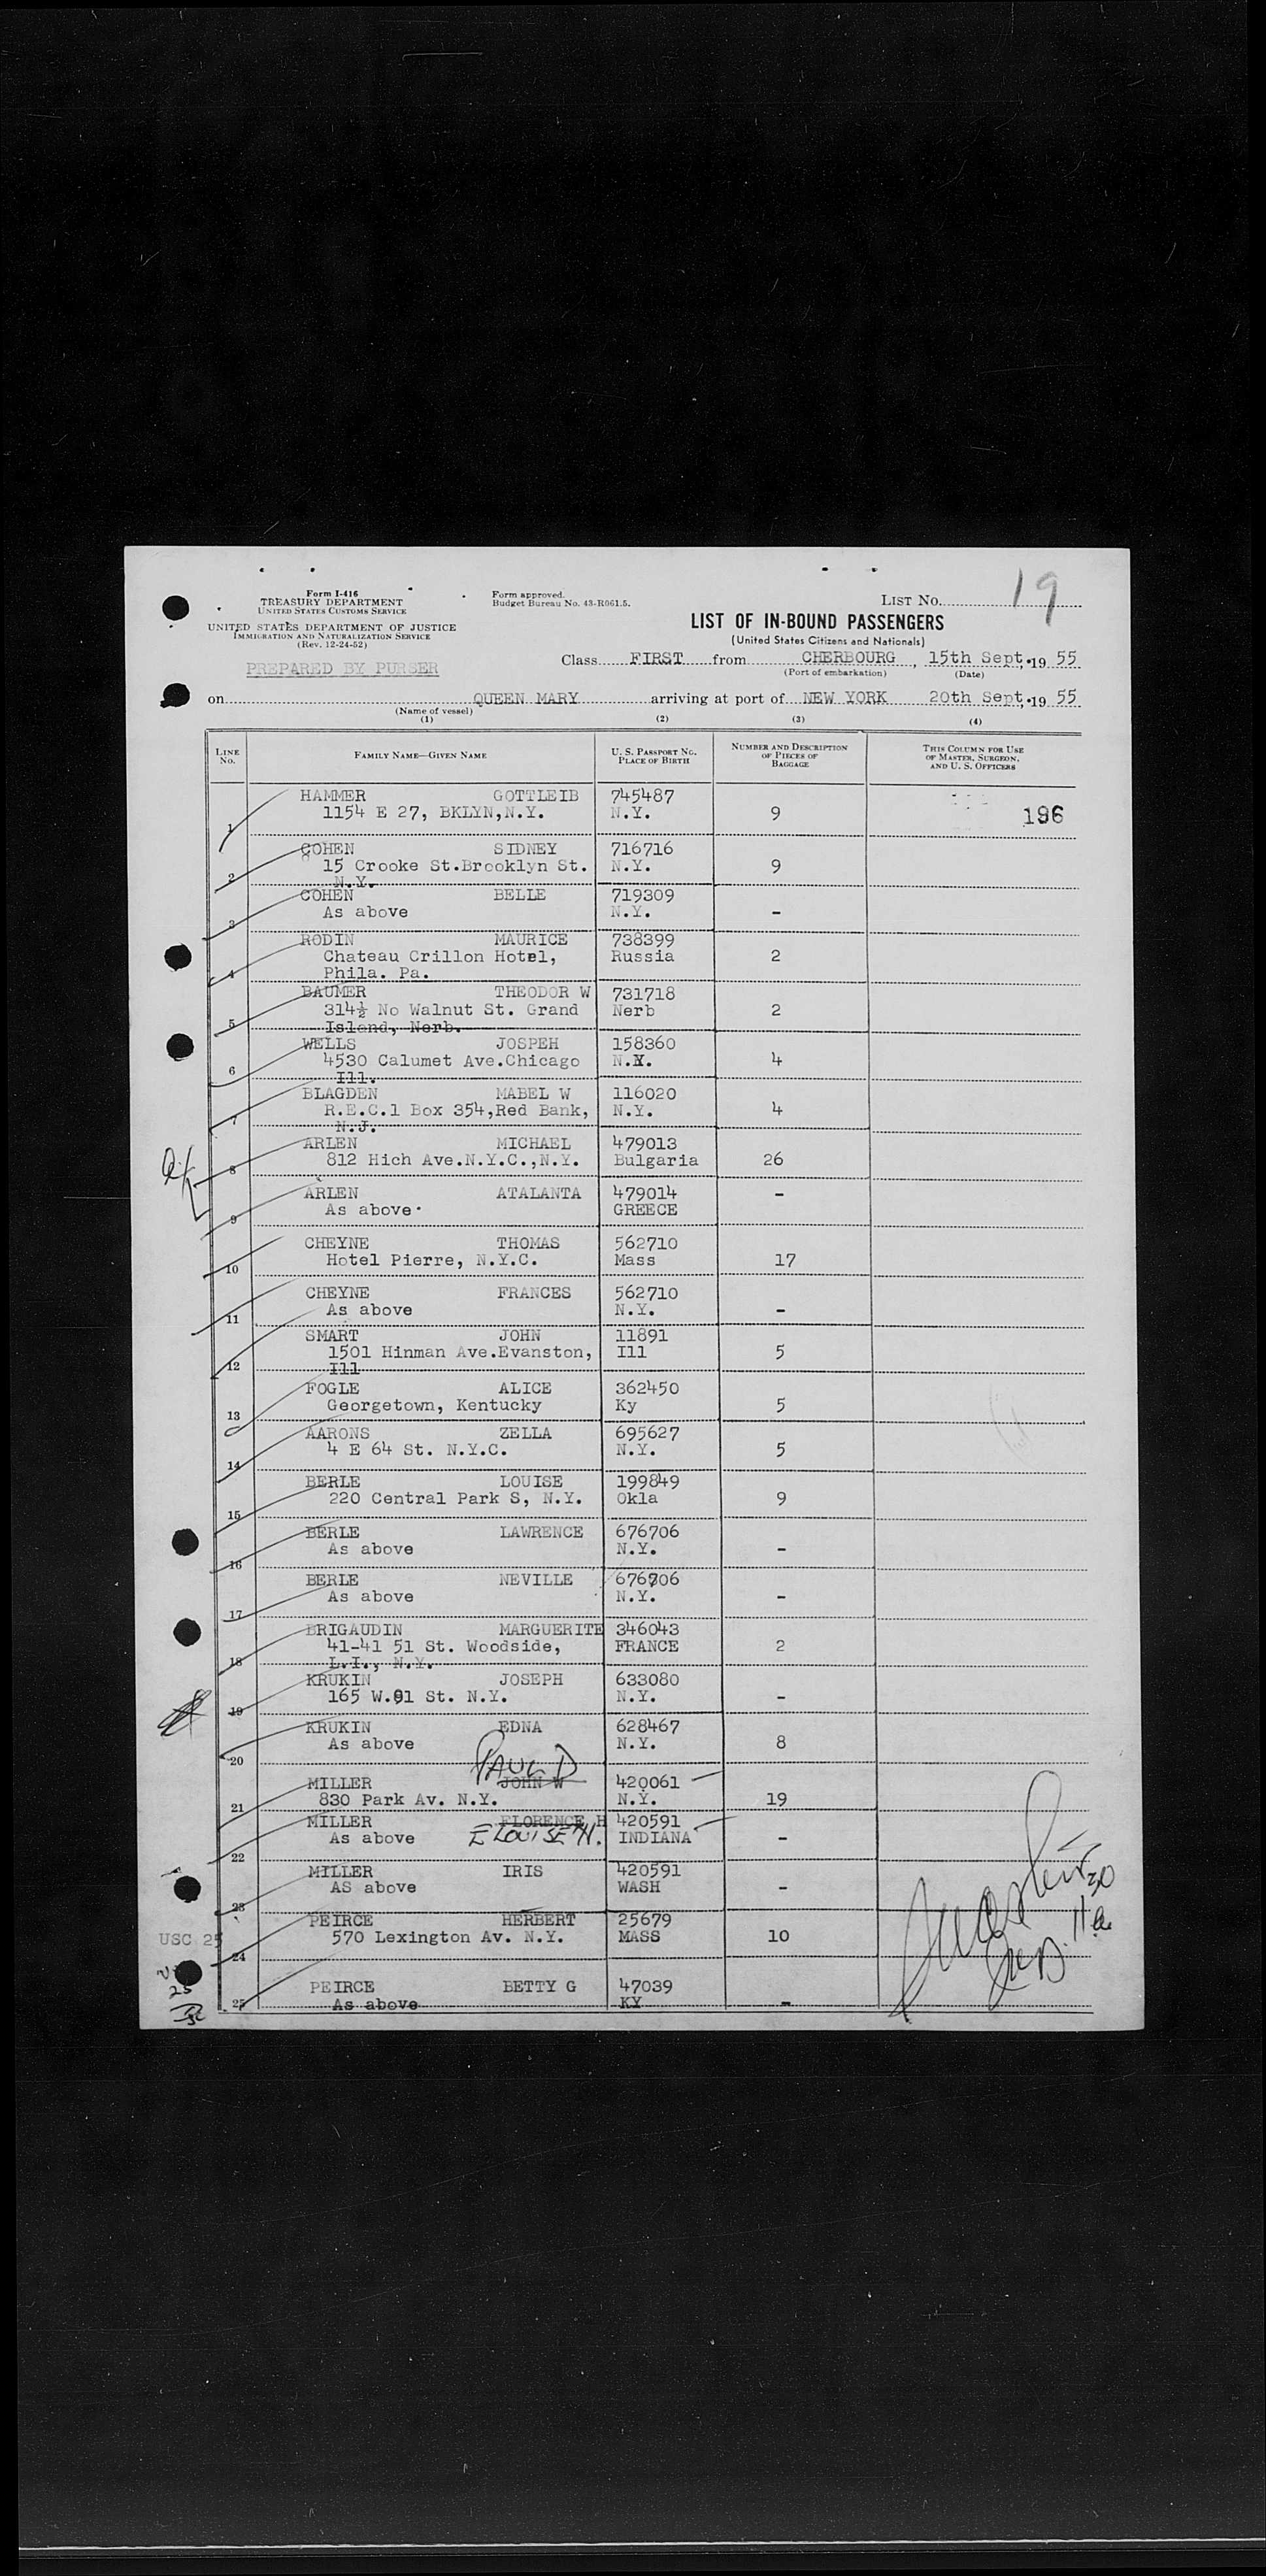 19
Form I-416
TREASURY DEPARTMENT
UNITED STATES CUSTOMS SERVICE
UNITED STATES DEPARTMENT OF JUSTICE
IMMIGRATION AND NATURALIZATION SERVICE
(Rev. 12-24-52)
PREPARED BY PURSER
Form approved.
Budget Bureau No. 43-R061.5.
LIST NO.
LIST OF IN-BOUND PASSENGERS
(United States Citizens and Nationals)
Class FIRST from CHERBOURG, 15th Sept, 19 55
(Port of embarkation) (Date)
on QUEEN MARY arriving at port of NEW YORK 20th Sept, 19 55
(Name of vessel)
(1) (2) (3) (4)
LINE NO. FAMILY NAME—GIVEN NAME U. S. PASSPORT NO. PLACE OF BIRTH NUMBER AND DESCRIPTION OF PIECES OF BAGGAGE THIS COLUMN FOR USE OF MASTER, SURGEON, AND U. S. OFFICERS
HAMMER GOTTLEIB 745487
1 1154 E 27, BKLYN,N.Y. N.Y. 9 196
COHEN SIDNEY 716716
2 15 Crooke St.Brooklyn St. N.Y. 9
N.Y.
COHEN BELLE 719309
3 As above N.Y. -
RODIN MAURICE 738399
4 Chateau Crillon Hotel, Russia 2
Phila. Pa.
BAUMER THEODOR W 731718
5 314½ No Walnut St. Grand Nerb 2
Island, Nerb.
WELLS JOSPEH 158360
6 4530 Calumet Ave.Chicago N.Y. 4
Ill.
BLAGDEN MABEL W 116020
7 R.E.C.1 Box 354,Red Bank, N.Y. 4
N.J.
ARLEN MICHAEL 479013
8 812 Hich Ave.N.Y.C.,N.Y. Bulgaria 26
ARLEN ATALANTA 479014 -
9 As above GREECE
CHEYNE THOMAS 562710
10 Hotel Pierre, N.Y.C. Mass 17
CHEYNE FRANCES 562710
11 As above N.Y. -
SMART JOHN 11891
12 1501 Hinman Ave.Evanston, Ill 5
Ill
FOGLE ALICE 362450
13 Georgetown, Kentucky Ky 5
AARONS ZELLA 695627
14 4 E 64 St. N.Y.C. N.Y. 5
BERLE LOUISE 199849
15 220 Central Park S, N.Y. Okla 9
BERLE LAWRENCE 676706
16 As above N.Y. -
BERLE NEVILLE 676706
17 As above N.Y. -
BRIGAUDIN MARGUERITE 346043
18 41-41 51 St. Woodside, FRANCE 2
L.I., N.Y.
KRUKIN JOSEPH 633080
19 165 W.91 St. N.Y. N.Y. -
KRUKIN EDNA 628467
20 As above N.Y. 8
PAUL D
MILLER JOHN W 420061
21 830 Park Av. N.Y. N.Y. 19
MILLER FLORENCE H 420591
22 As above ELOUISE H. INDIANA -
MILLER IRIS 420591
23 AS above WASH -
PEIRCE HERBERT 25679
USC 25 24 570 Lexington Av. N.Y. MASS 10
PEIRCE BETTY G 47039
25 As above KY -
25